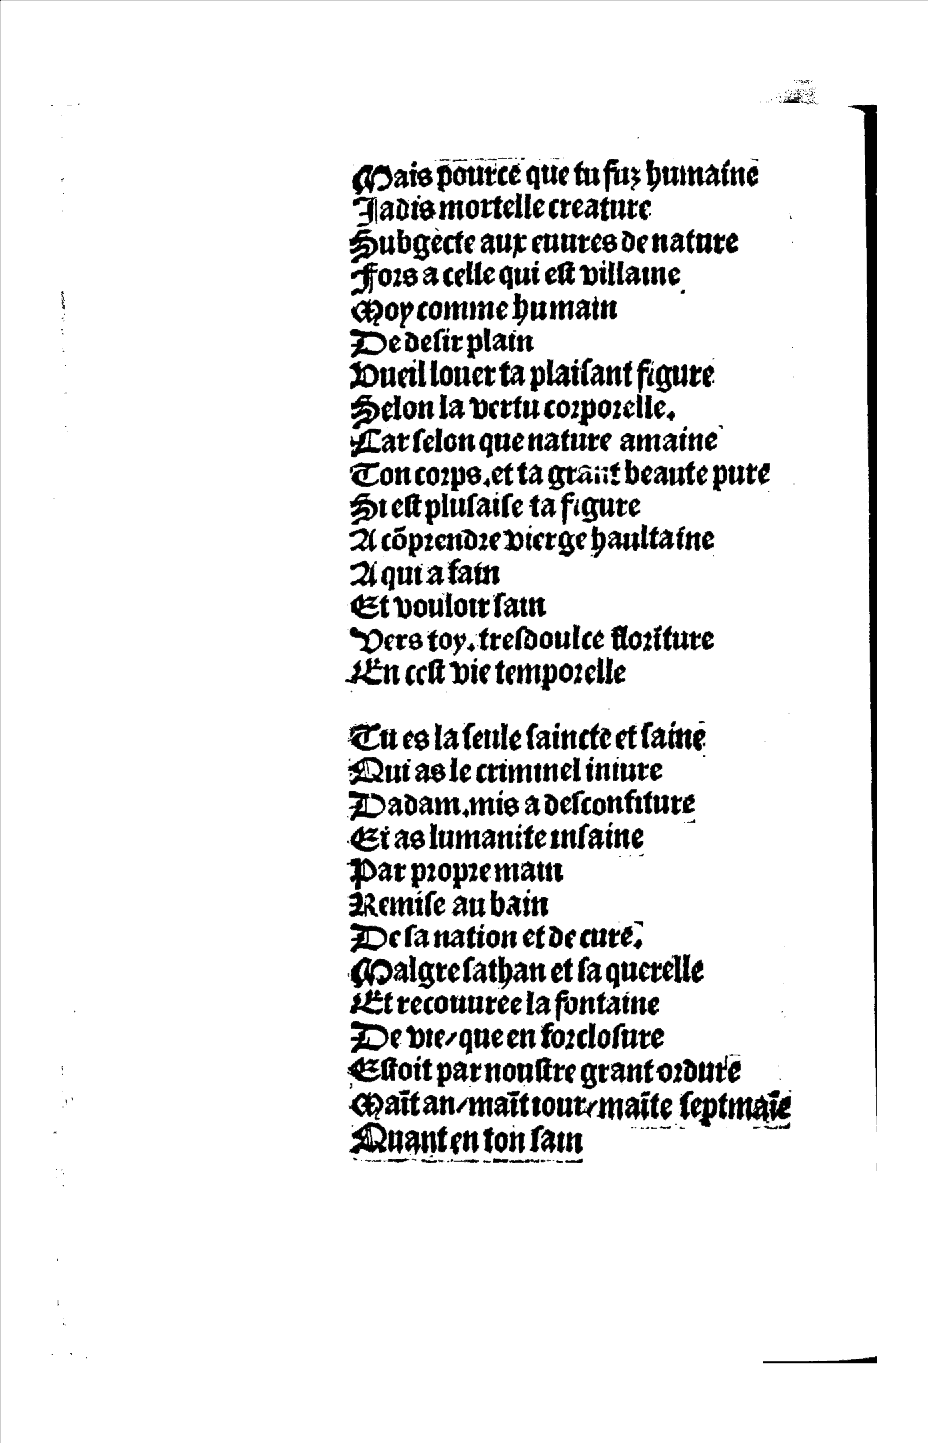 Mais pource que tu fuz humaine
Jadis mortelle creature
Subgecte aux euures de nature
Fors a celle qui est villaine
Moy comme humain
De desir plain
Vueil louer ta plaisant figure
Selon la vertu corporelle.
Car selon que nature amaine
Ton corps.et ta grant beaute pure
Si est plusaise ta figure
A cõprendre vierge haultaine
A qui a fain
Et vouloir sain
Vers toy.tresdoulce floriture
En cest vie temporelle
Tu es la seule saincte et saine
Qui as le criminel iniure
Dadam.mis a desconfiture
Et as lumanite insaine
Par propre main
Remise au bain
De sa nation et de cure.
Malgre sathan et sa querelle
Et recouuree la fontaine
De vie/que en forclosure
Estoit par noustre grant ordure
Maĩt an/maĩt iour/maĩte septmaĩe
Quant en ton sain